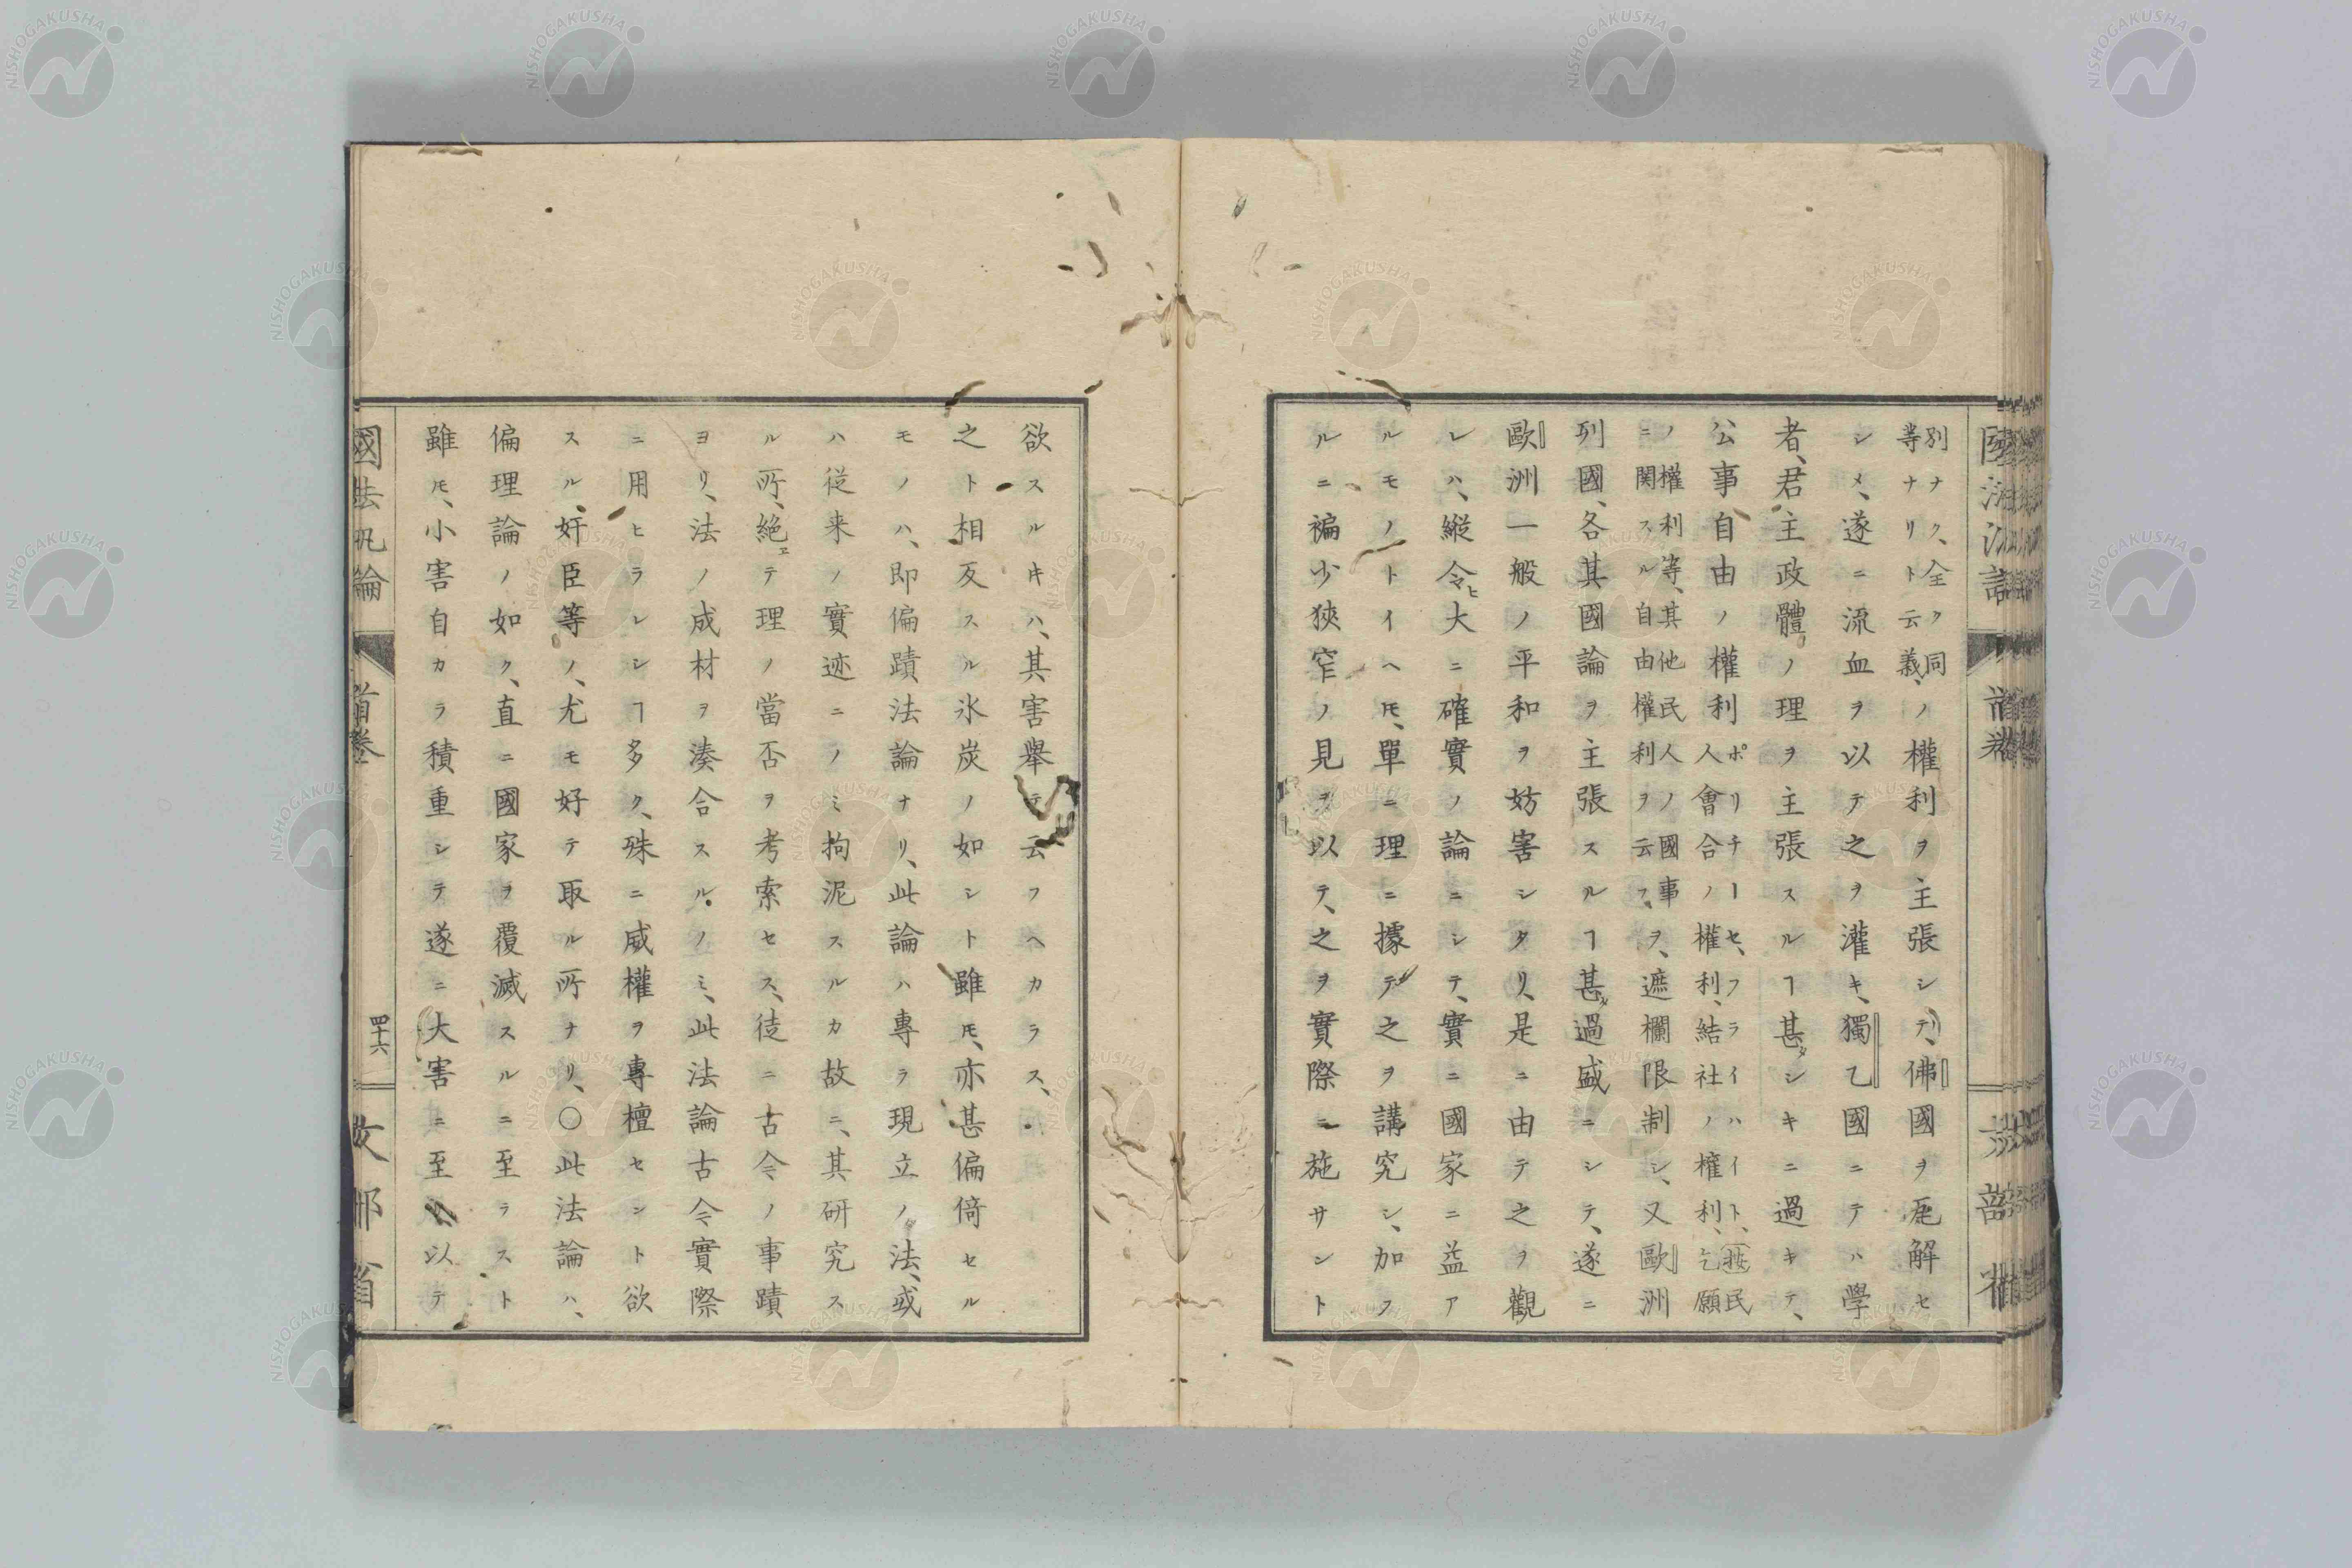 國法汎論 首巻 文部省
別ナク、全ク同
等ナリト云義、ノ權利ヲ主張シテ、佛國ヲ瓦解セ
シメ、遂ニ流血ヲ以テ之ヲ灌キ、獨乙國ニテハ學
者、君主政體ノ理ヲ主張スルヿ甚タシキニ過キテ、
公事自由ノ權利ポリチーセ、フライハイト、按民
人會合ノ權利、結社ノ権利、乞願
ノ權利等、其他民人ノ國事
ニ関スル自由權利ヲ云フ、ヲ、遮欄限制シ、又歐洲
列國、各其國論ヲ主張スルヿ甚タ過盛ニシテ、遂ニ
歐洲一般ノ平和ヲ妨害シタリ、是ニ由テ之ヲ觀
レハ、縦令ヒ大ニ確實ノ論ニシテ、實ニ國家ニ益ア
ルモノトイヘ𪜈、單ニ理ニ據テ之ヲ講究シ、加フ
ルニ褊少狹窄ノ見ヲ以テ、之ヲ實際ニ施サント
欲スルキハ、其害舉テ云フヘカラス、
之ト相反スル氷炭ノ如シト雖𪜈、亦甚偏倚セル
モノハ、即偏蹟法論ナリ、此論ハ專ラ現立ノ法、或
ハ従来ノ實迹ニノミ拘泥スルカ故ニ、其研究ス
ル所、絶エテ理ノ當否ヲ考索セス、徒ニ古今ノ事蹟
ヨリ、法ノ成材ヲ湊合スルノミ、此法論古今實際
ニ用ヒラレシヿ多ク、殊ニ威權ヲ專檀セント欲
スル、奸臣等ノ、尤モ好テ取ル所ナリ、〇此法論ハ、
偏理論ノ如ク、直ニ國家ヲ覆滅スルニ至ラスト
雖𪜈、小害自カラ積重シテ遂ニ大害ニ至ル以テ
國法汎論 首巻 四十六 文部省
NISHOGAKUSHA